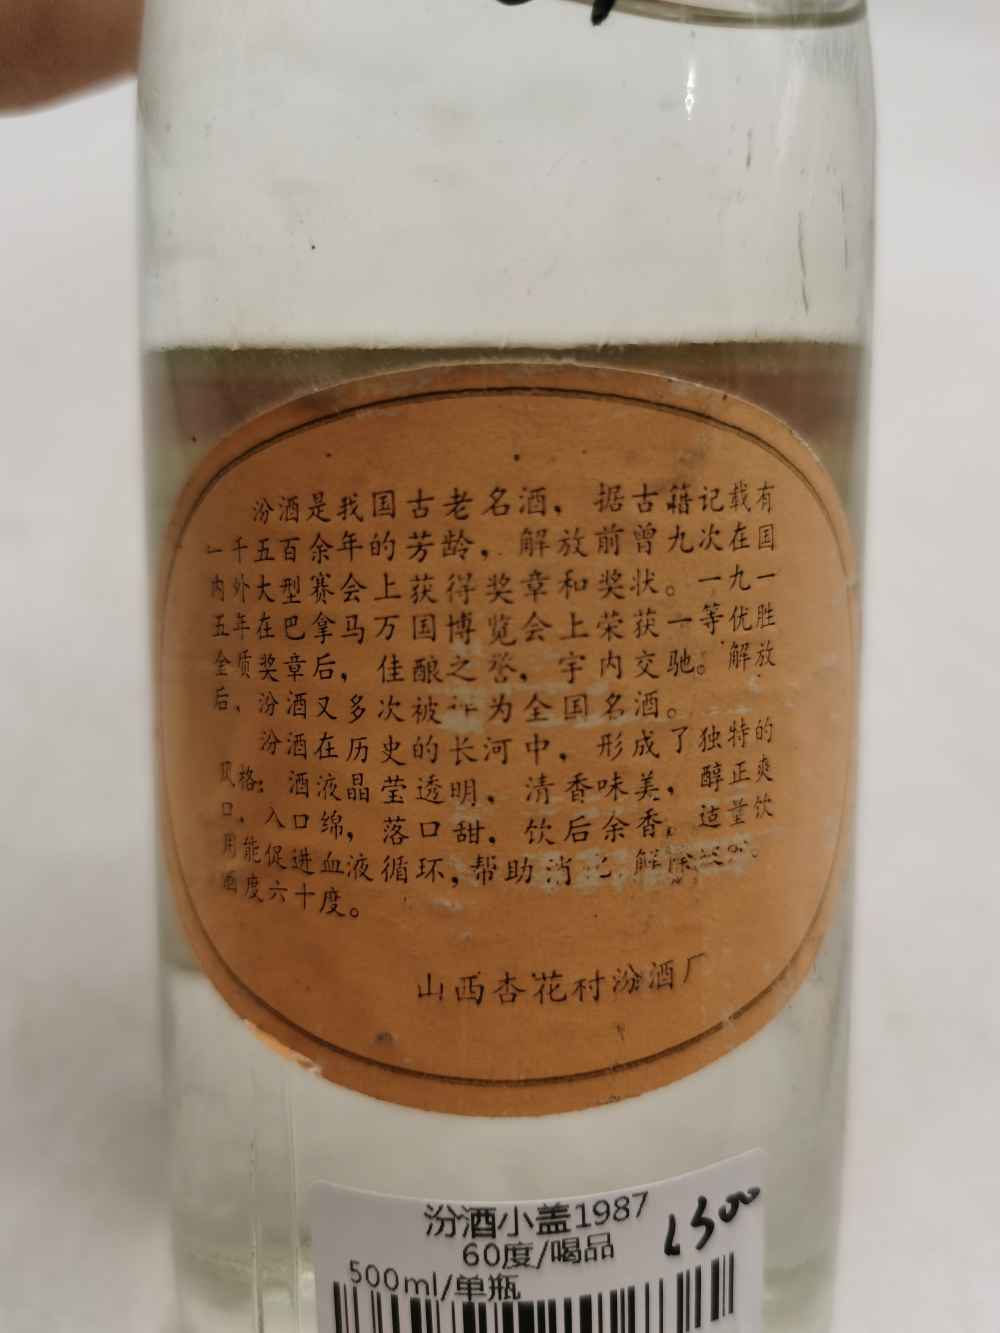 汾酒是我国古老名酒，据古籍记载有
一千五百余年的芳龄，解放前曾九次在国
内外大型赛会上获得奖章和奖状。一九一
五年在巴拿马万国博览会上荣获一等优胜
金质奖章后，佳酿之誉，宇内交驰。解放
后，汾酒又多次被评为全国名酒。
汾酒在历史的长河中，形成了独特的
风格：酒液晶莹透明，清香味美，醇正爽
口，入口绵，落口甜，饮后余香，适量饮
用能促进血液循环，帮助消化，解除
酒度六十度。
山西杏花村汾酒厂
汾酒小盖1987
60度/喝品
500ml/单瓶